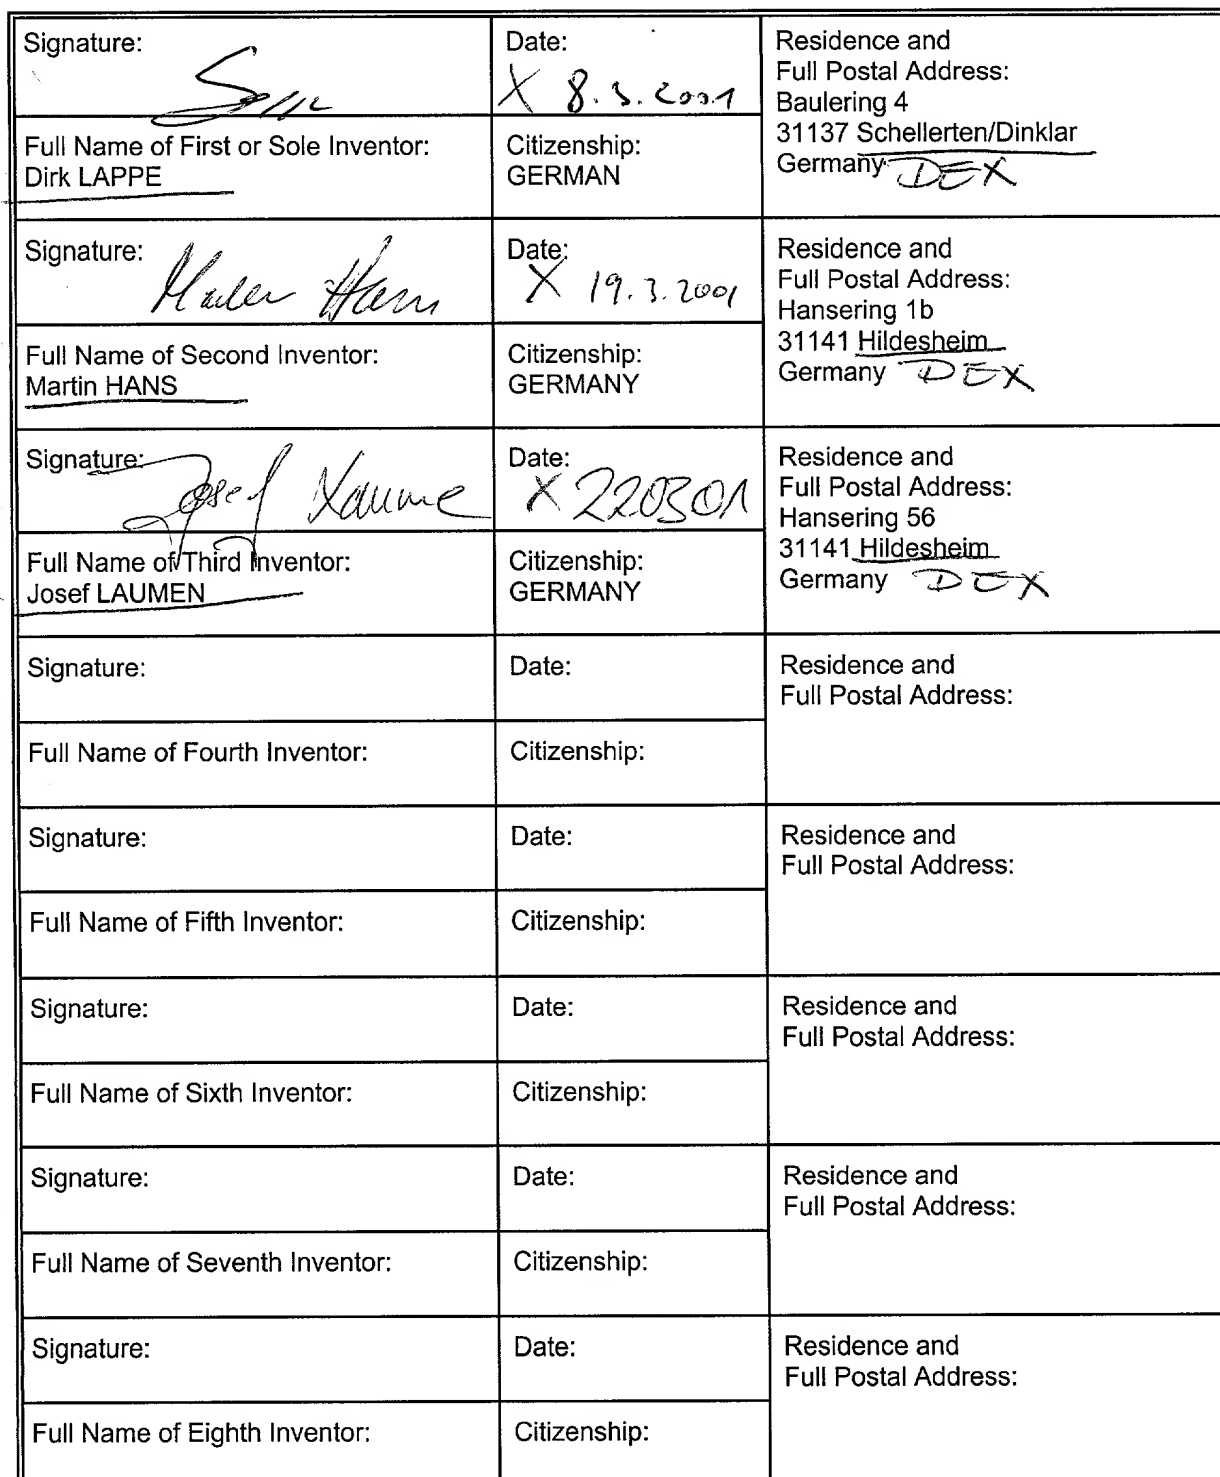 Signature:
Date:
X 8.3.2001
Residence and
Full Postal Address:
Baulering 4
31137 Schellerten/Dinklar
Germany DEX
Full Name of First or Sole Inventor:
Dirk LAPPE
Citizenship:
GERMAN
Signature:
Martin Hans
Date:
X 19.3.2001
Residence and
Full Postal Address:
Hansering 1b
31141 Hildesheim
Germany DEX
Full Name of Second Inventor:
Martin HANS
Citizenship:
GERMANY
Signature:
Josef Laume
Date:
X 220301
Residence and
Full Postal Address:
Hansering 56
31141 Hildesheim
Germany DEX
Full Name of Third Inventor:
Josef LAUMEN
Citizenship:
GERMANY
Signature:
Date:
Residence and
Full Postal Address:
Full Name of Fourth Inventor:
Citizenship:
Signature:
Date:
Residence and
Full Postal Address:
Full Name of Fifth Inventor:
Citizenship:
Signature:
Date:
Residence and
Full Postal Address:
Full Name of Sixth Inventor:
Citizenship:
Signature:
Date:
Residence and
Full Postal Address:
Full Name of Seventh Inventor:
Citizenship:
Signature:
Date:
Residence and
Full Postal Address:
Full Name of Eighth Inventor:
Citizenship: